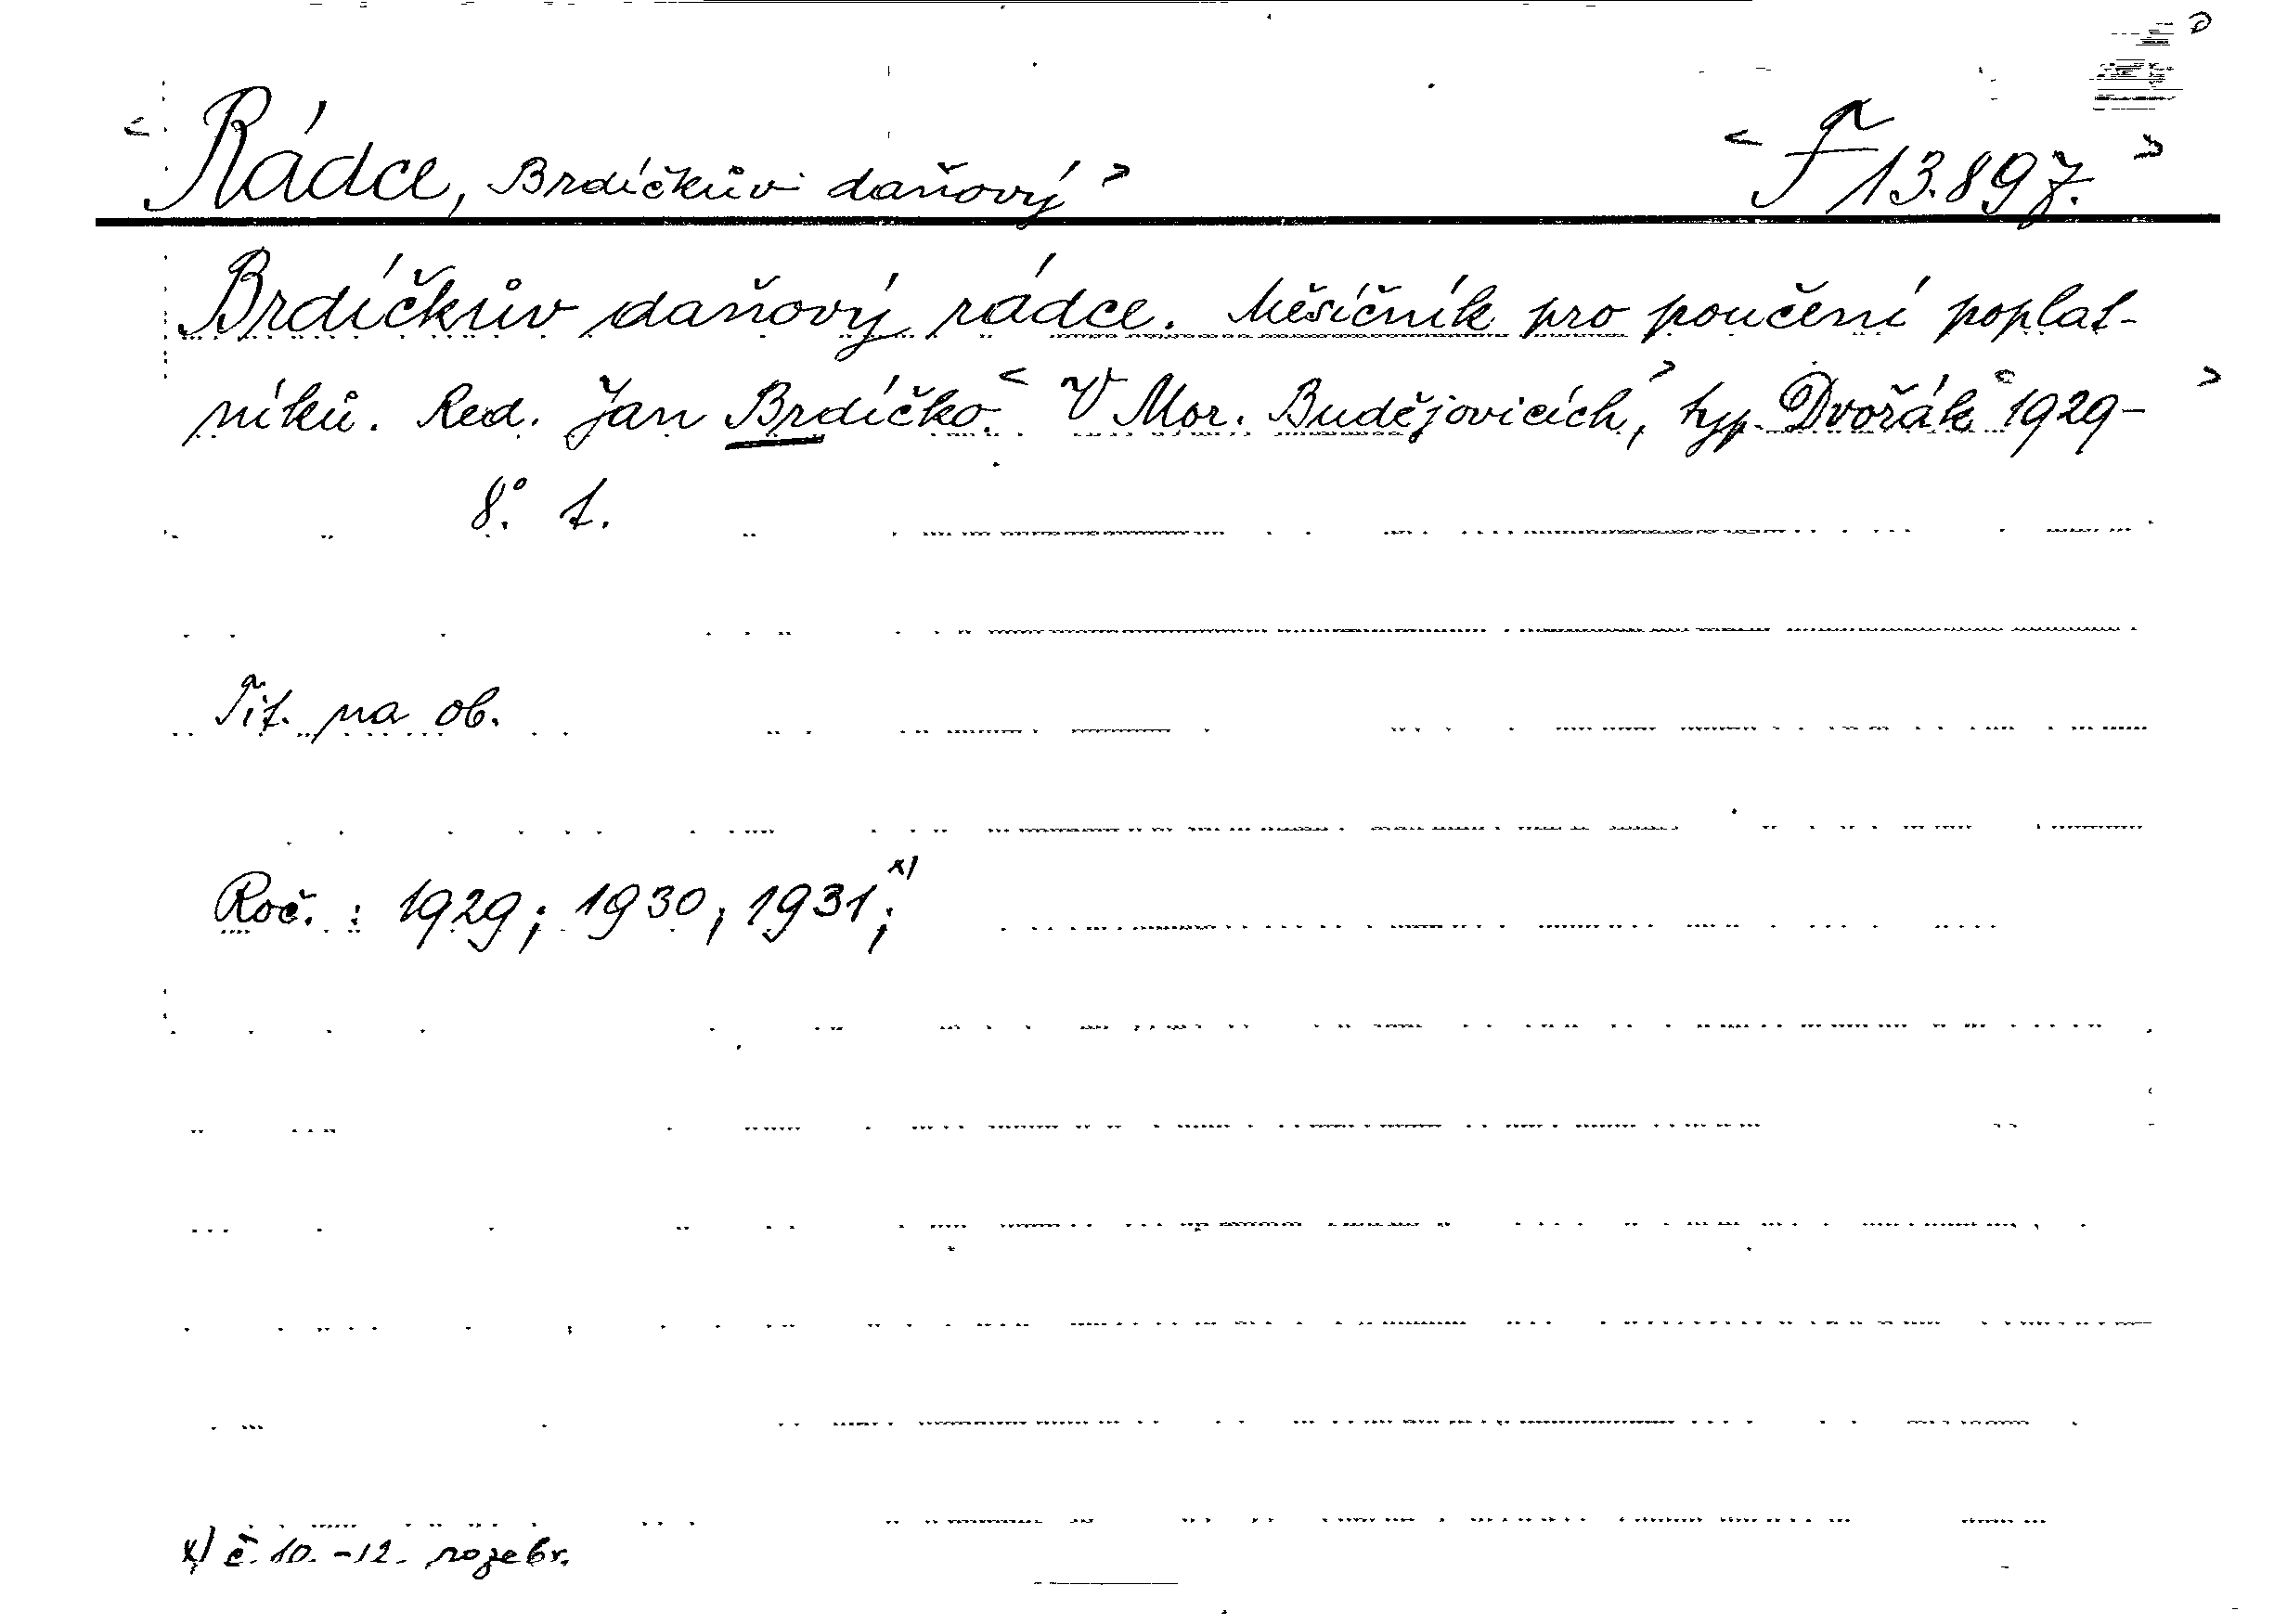 < Rádce, Brdíčkův daňový > < F 13.897. >
Brdíčkův daňový rádce. Měsíčník pro poučení poplat-
níků. Red. Jan Brdíčko. < V Mor. Budějovicích, > typ. Dvořák < 1929- >
8°. t.
Tit. na ob.
Roč. : 1929; 1930; 1931 x);
x) č. 10. - 12. rozebr.